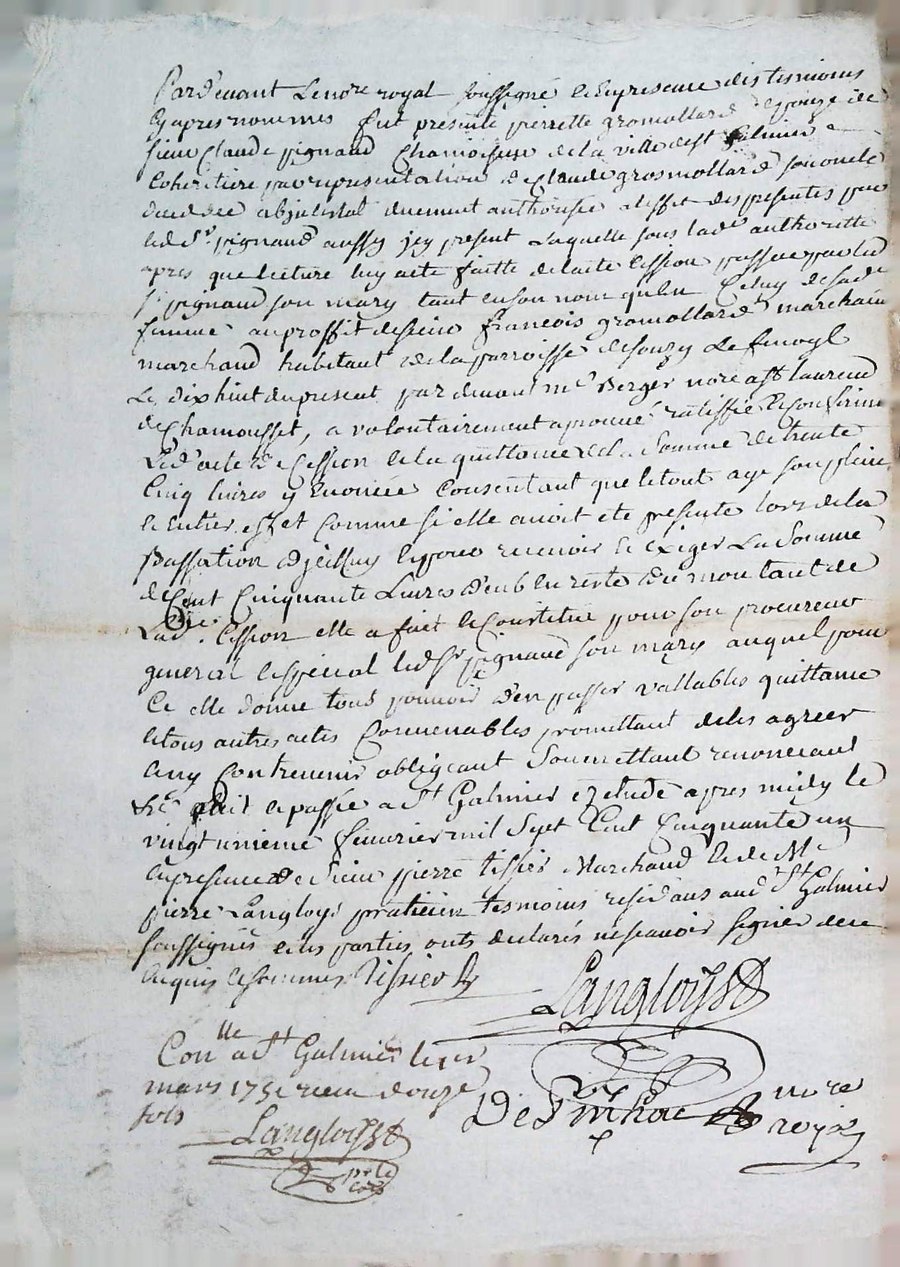 Pardevant Lenore royal soussigné et en presance des tesmoins
cy apres nommes fut presente pierrette gromollard Epouze de
sieur Claude pignaud Chamoiseur de la ville de st Galmier
Coheritiere par representation de Claude grosmollard son oncle
decedee abjntestat duement authorisee a leffet des presentes par
led sr pignaud aussy jcy present Laquelle sous lade authoritte
apres que lecture luy a ete faitte de lacte cession passee par led
sr pignaud son mary tant en son nom qu'en Celuy de sade
femme au proffit de sieur francois gromollard marchain
marchand habitant de la parroisse de souzy
Le dix huit du present par devant me Berger nore a st laurend
de chamousset, a volontairement aprouvé ratiffie et Confirme
Led acte de Cession et la quittance de la somme de trente
Cinq livres y Enoncée Consentant que le tout aye son plein
et entier effet comme si elle avoit ete presente lors de la
passation d'jcelluy et pour recevoir et exiger La Somme
de Cent Cinquante Livres deub en reste du montant de
Lade. Cession elle a fait et Constitué pour son procureur
general et special led sr pignaud son mary auquel pour
Ce elle donne tous pouvoir d'en passer vallables quittance
et tous autres actes Convenables promettant de les agreer
sans y contrevenir obligeant Soumettant renonceant
&c fait et passée a St Galmier Etude apres midy le
vingt unieme fevrier mil Sept Cent Cinquante un
En presence de Sieur pierre tissier Marchand et de Me
pierre Langloys praticien tesmoins residans aud St Galmier
soussignés et les parties onts declarés ne scavoir signer de ce
enquis et sommes Tissier
Langloys
Conlle a St Galmier le 1er
mars 1751 recu douze
sols
Langloys
nore
royal